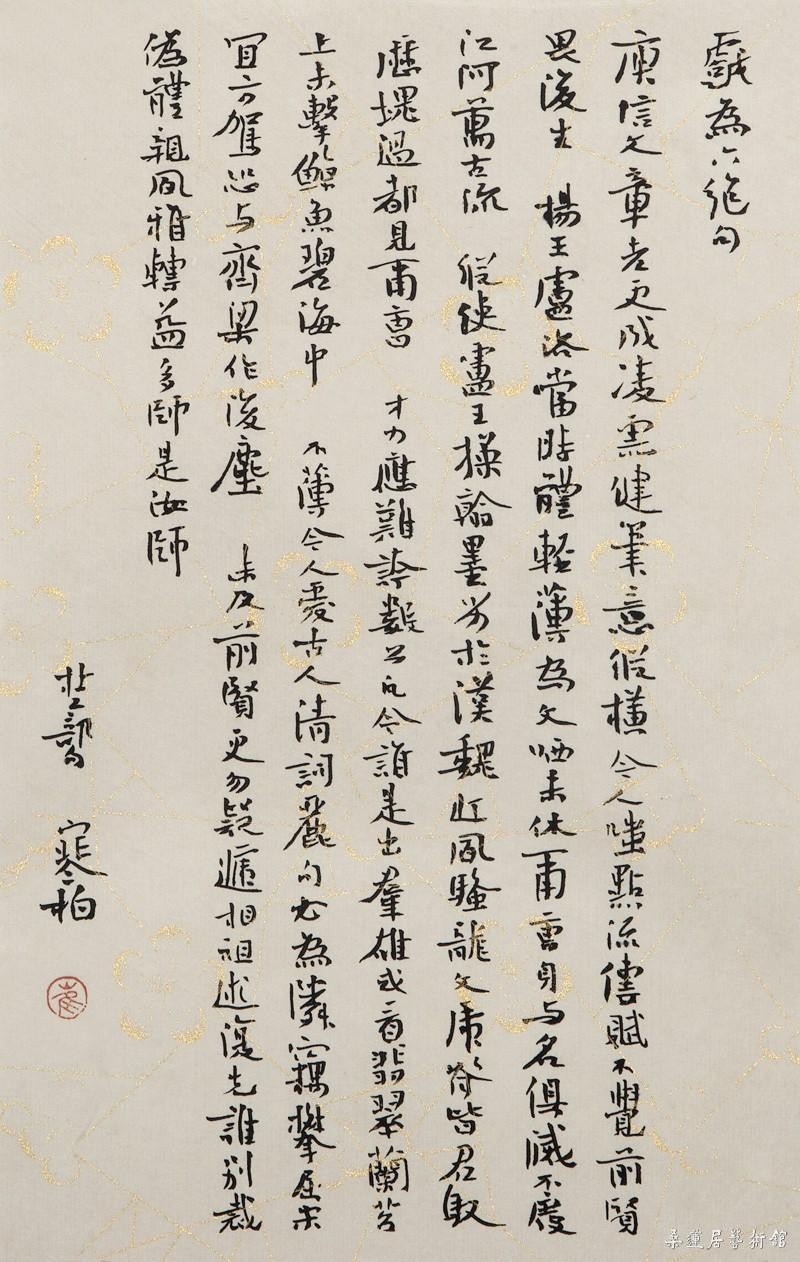 戲為六絕句
庾信文章老更成凌雲健筆意縱橫今人嗤點流傳賦不覺前賢
畏後生 楊王盧洛當時體輕薄為文哂未休爾曹身与名俱滅不廢
江河萬古流 縱使盧王操翰墨劣於漢魏近風騷龍文虎脊皆君馭
歷塊過都見爾曹 才力應難誇數公凡今誰是出群雄或看翡翠蘭苕
上未掣鯨魚碧海中 不薄今人愛古人清詞麗句必為隣竊攀屈宋
宜方駕恐与齊梁作後塵 未及前賢更勿疑遞相祖述復先誰別裁
偽體親風雅轉益多師是汝師
寒柏
桑蓮居藝術館